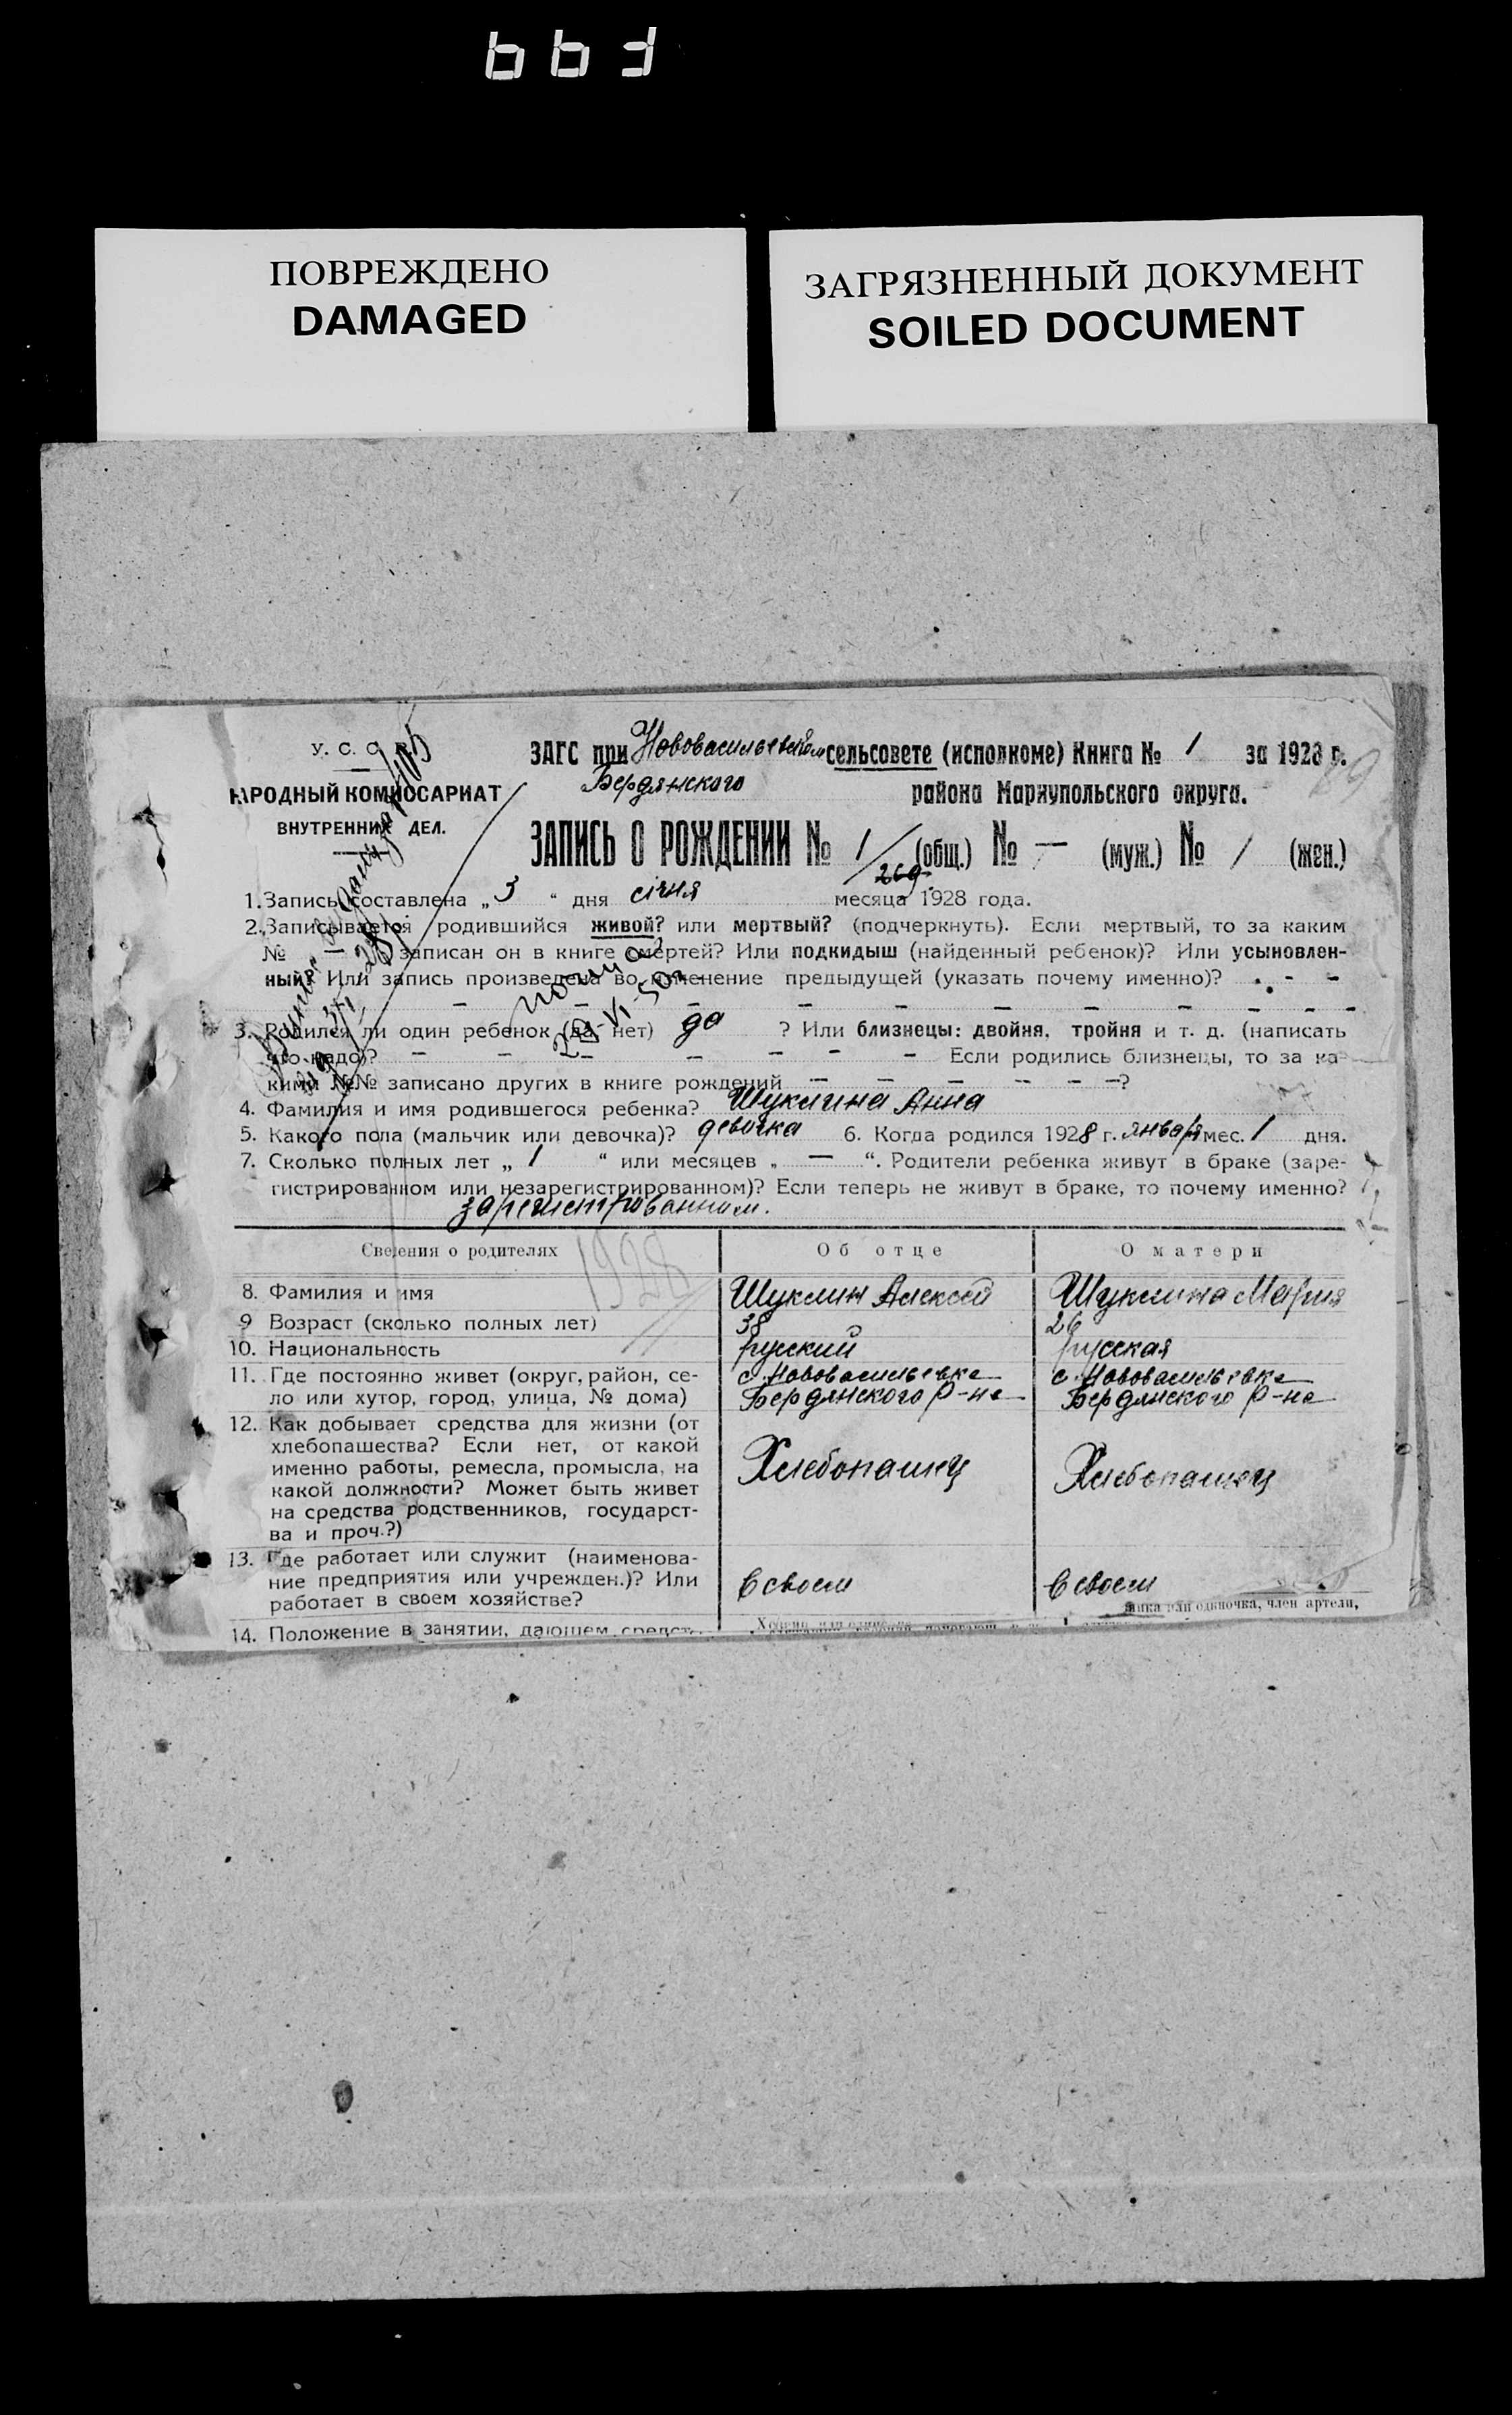 ПОВРЕЖДЕНО
DAMAGED
ЗАГРЯЗНЕННЫЙ ДОКУМЕНТ
SOILED DOCUMENT
У. С. С.
НАРОДНЫЙ КОМИССАРИАТ
ВНУТРЕННИХ ДЕЛ.
ЗАГС при Нововасильевском сельсовете (исполкоме) Книга № 1 за 1928 г.
Бердянского района Мариупольского округа.
ЗАПИСЬ О РОЖДЕНИИ № 1 (общ.) № — (муж.) № 1 (жен.)
269
1. Запись составлена „ 3 “ дня січня месяца 1928 года.
2. Записывается родившийся живой? или мертвый? (подчеркнуть). Если мертвый, то за каким
№ — записан он в книге смертей? Или подкидыш (найденный ребенок)? Или усыновлен-
ный? Или запись произведена во изменение предыдущей (указать почему именно)? - - -
— — — — — — — — — —
3. Родился ли один ребенок (да нет) да ? Или близнецы: двойня, тройня и т. д. (написать
что надо)? — — — — — — — Если родились близнецы, то за ка-
кими №№ записано других в книге рождений — — — — — —?
4. Фамилия и имя родившегося ребенка? Шуклина Анна
5. Какого пола (мальчик или девочка)? девочка 6. Когда родился 1928 г. января мес. 1 дня.
7. Сколько полных лет „ 1 “ или месяцев „ — “. Родители ребенка живут в браке (заре-
гистрированном или незарегистрированном)? Если теперь не живут в браке, то почему именно?
зарегистрованном.
1928
Сведения о родителях Об отце О матери
8. Фамилия и имя Шуклин Алексей Шуклина Мария
9 Возраст (сколько полных лет) 38 26
10. Национальность русский русская
11. Где постоянно живет (округ, район, се- с. Нововасильевка с. Нововасильевка
ло или хутор, город, улица, № дома) Бердянского р-на Бердянского р-на
12. Как добывает средства для жизни (от
хлебопашества? Если нет, от какой
именно работы, ремесла, промысла, на Хлебопашец Хлебопашец
какой должности? Может быть живет
на средства родственников, государст-
ва и проч.?)
13. Где работает или служит (наименова-
ние предприятия или учрежден.)? Или В своем В своем
работает в своем хозяйстве?
одиночка, член артели,
14. Положение в занятии, дающем средст-